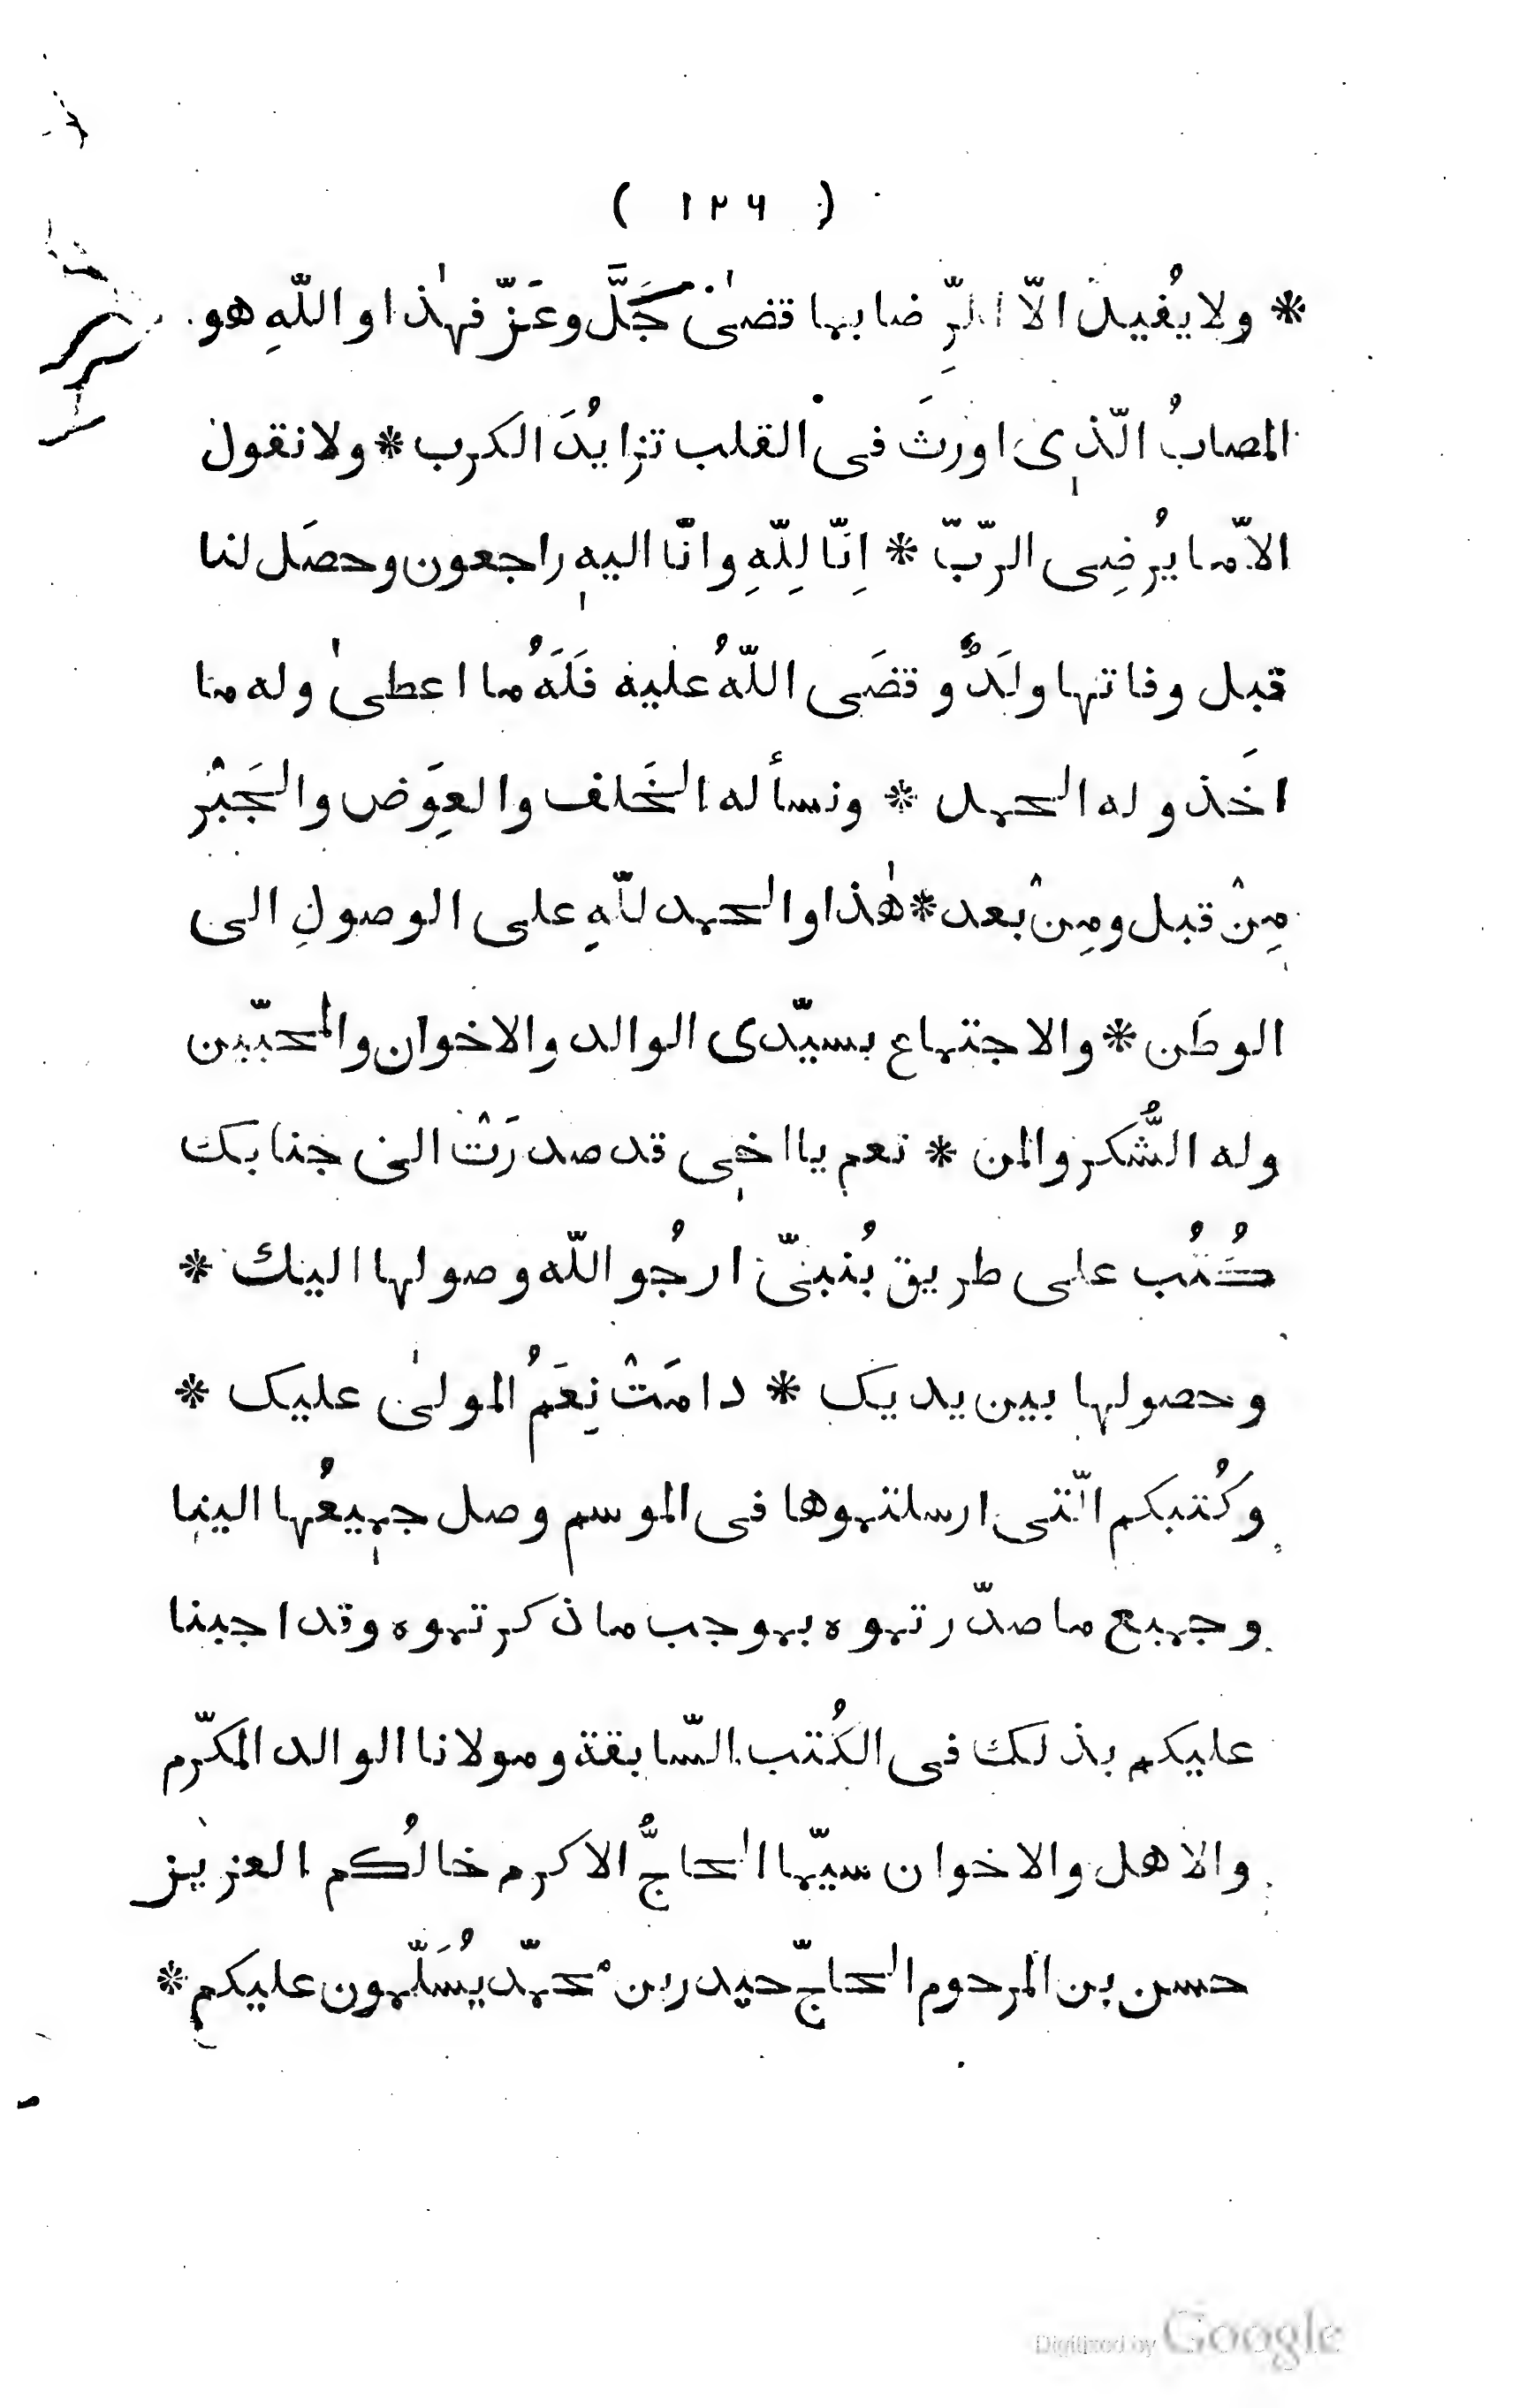 ( ١٢٦ )
* ولا يُفيد الّا الرِّضا بما قضىٰ جَلَّ وعَزّ فهٰذا واللّهِ هو
المصابُ الّذى اورثَ فى القلب تزايُدَ الكرب * ولا نقول
الّا ما يُرضِى الربّ * اِنّا لِلّهِ وانّا اليه راجعون وحصَل لنا
قبل وفاتها ولَدٌ وقضَى اللّهُ عليه فَلَهُ ما اعطىٰ وله ما
اخَذ وله الحمد * ونسأله الخَلف والعِوَض والجَبْر
مِنْ قبل ومِنْ بعد * هٰذا والحمد للّهِ على الوصولِ الى
الوطَن * والاجتماع بسيّدى الوالد والاخوان والمحبّين
وله الشُّكر والمن * نعم يا اخى قد صدرَتْ الى جنابك
كُتُب على طريق بُنبىّ ارجُو اللّه وصولها اليك *
وحصولها بين يديک * دامَتْ نِعَمُ المولىٰ عليک *
وكُتبكم الّتى ارسلتموها فى الموسم وصل جميعُها الينا
وجميع ما صدّرتموه بموجب ما ذكرتموه وقد اجبنا
عليكم بذلك فى الكُتب السّابقة ومولانا الوالد المكرّم
والاهل والاخوان سيّما الحاجُّ الاكرم خالُكم العزيز
حسن بن المرحوم الحاجّ حيدر بن محمّد يُسَلّمون عليكم *
Digitized by Google